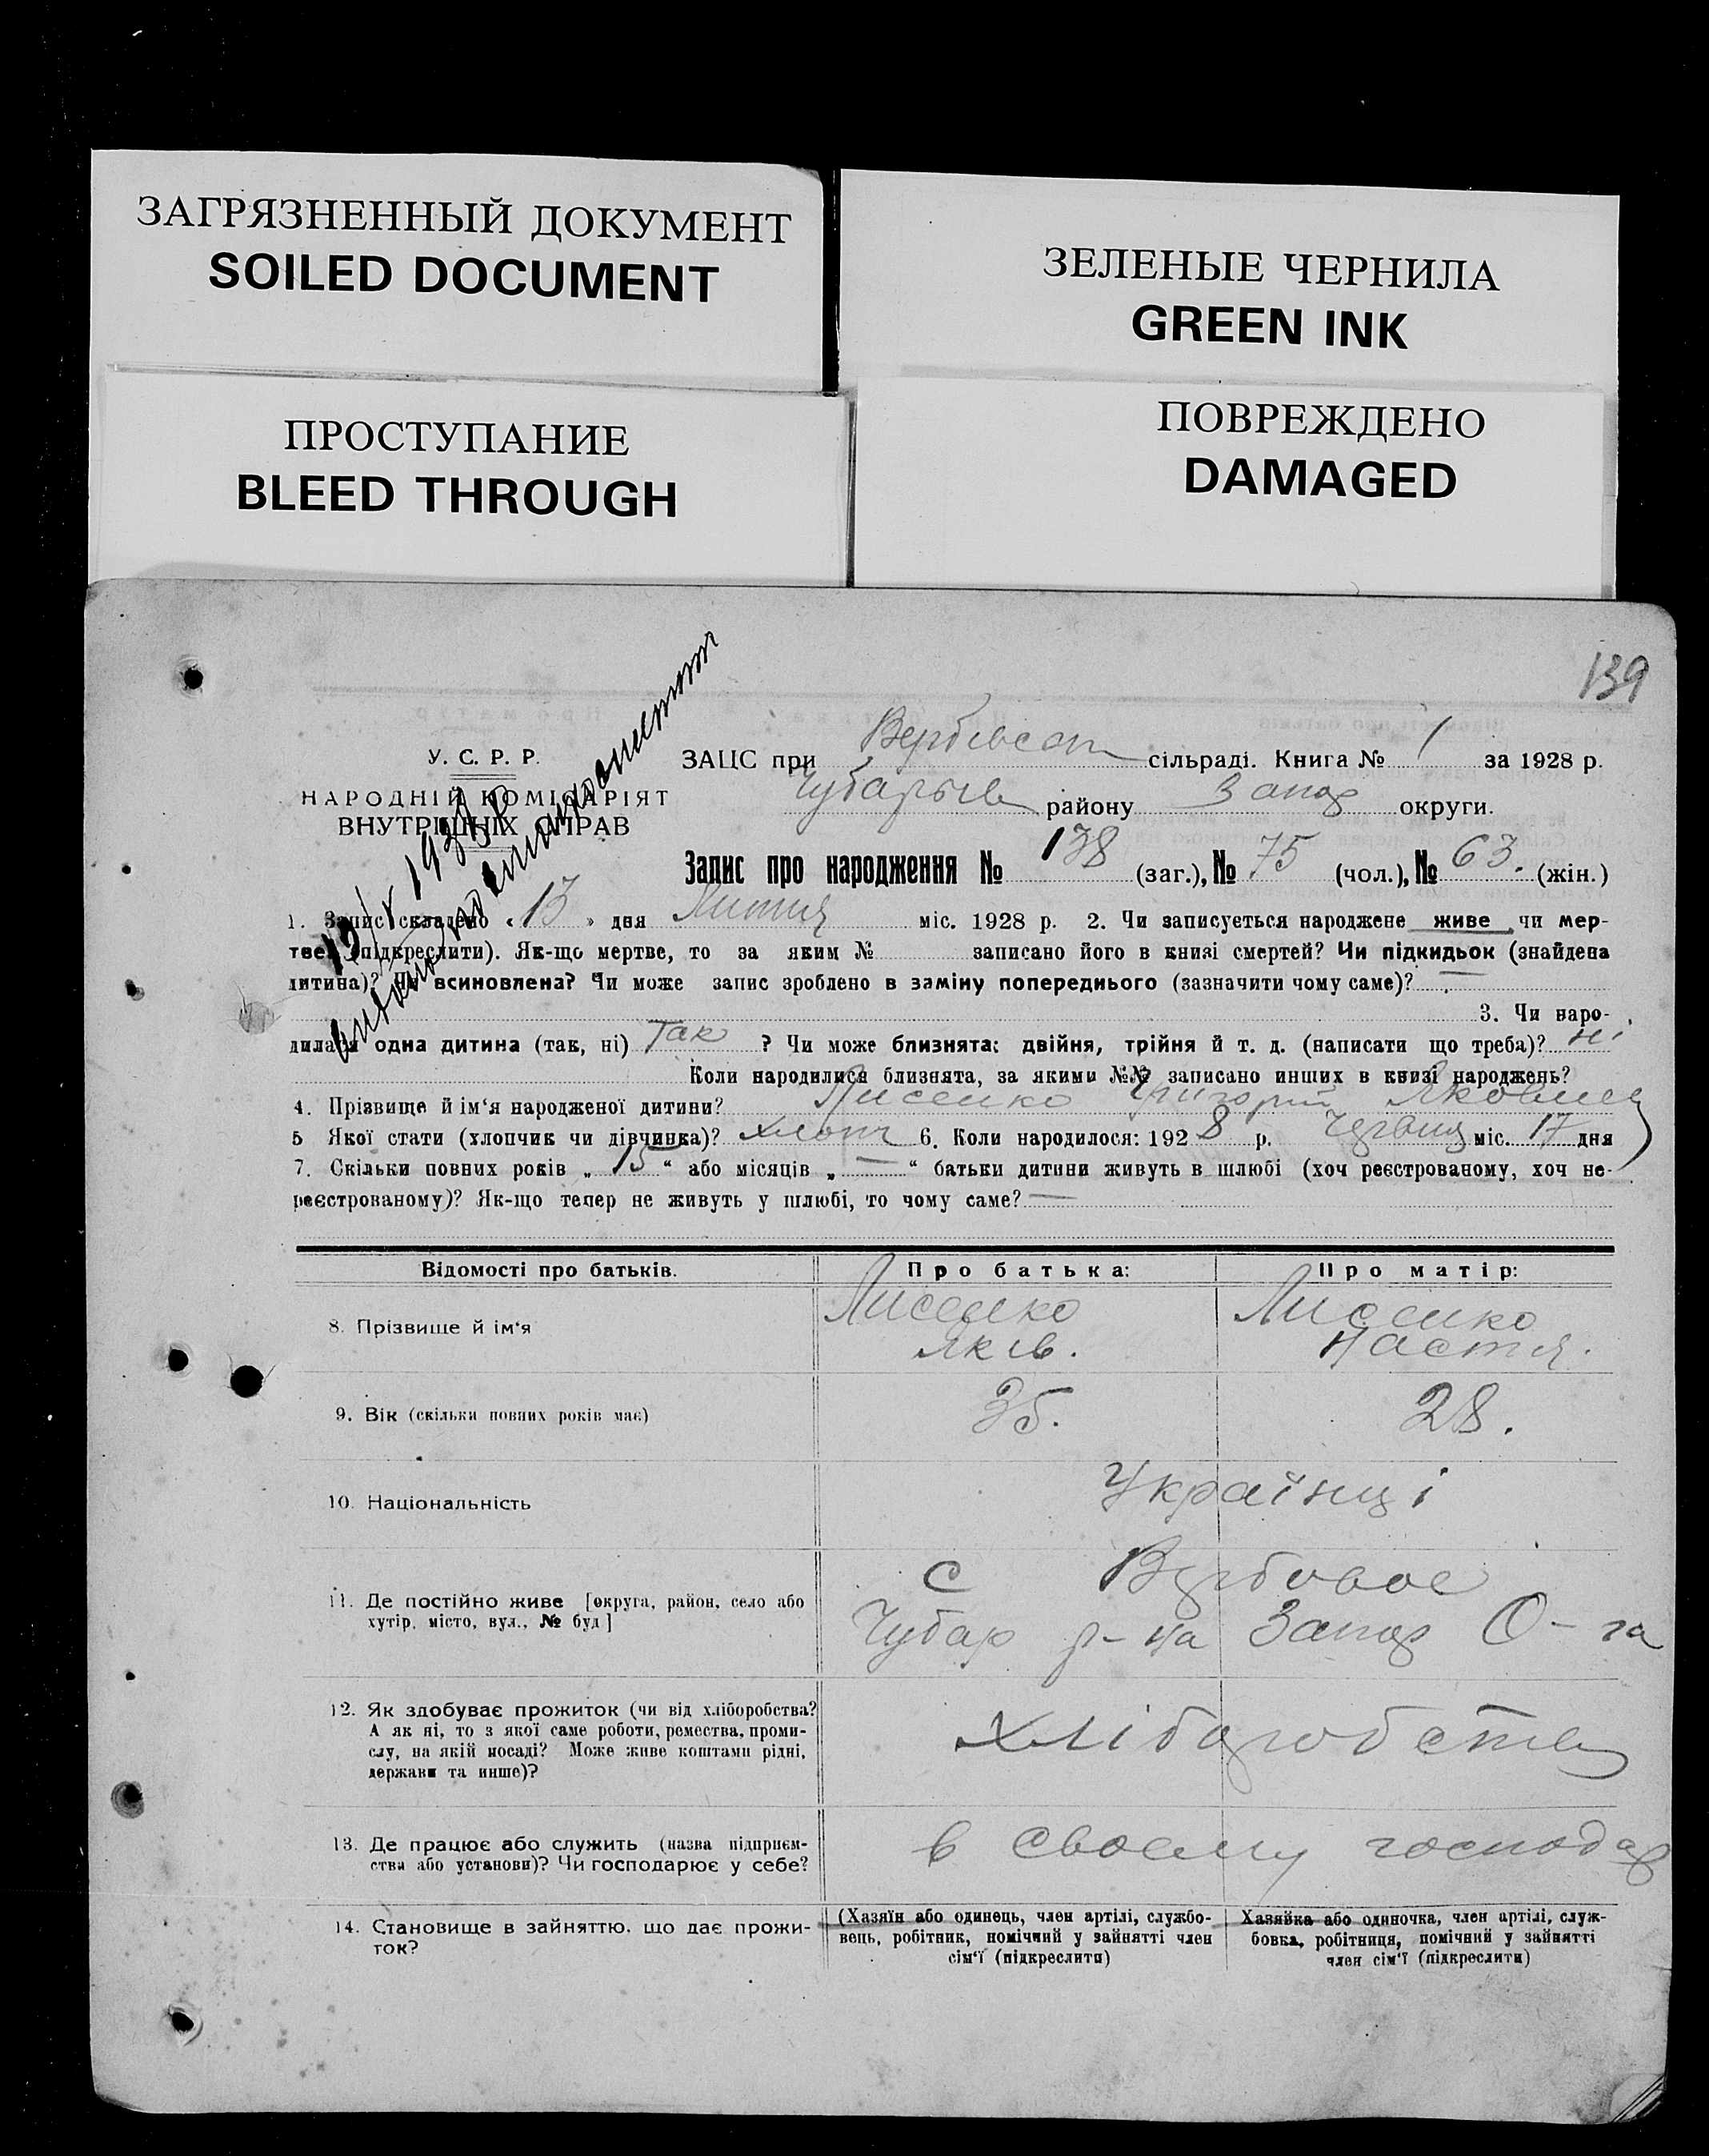 ЗАГРЯЗНЕННЫЙ ДОКУМЕНТ
SOILED DOCUMENT
ЗЕЛЕНЫЕ ЧЕРНИЛА
GREEN INK
ПРОСТУПАНИЕ
BLEED THROUGH
ПОВРЕЖДЕНО
DAMAGED
139
У. С. Р. Р.
НАРОДНІЙ КОМІСАРІЯТ
ВНУТРІШНІХ СПРАВ
ЗАЦС при Вербівськ сільраді. Книга № 1 за 1928 р.
Чубарьів району Запор округи.
Запис про народження № 138 (заг.), № 75 (чол.), № 63. (жін.)
1. Запис складено « 13 » дня Липня міс. 1928 р. 2. Чи записується народжене живе чи мер-
тве (підкреслити). Як-що мертве, то за яким № записано його в книзі смертей? Чи підкидьок (знайдена
дитина)? Чи всиновлена? Чи може запис зроблено в заміну попереднього (зазначити чому саме)? —
3. Чи наро-
дилася одна дитина (так, ні) так ? Чи може близнята: двійня, трійня й т. д. (написати що треба)? ні
Коли народилися близнята, за якими №№ записано инших в книзі народжень?
4. Прізвище й ім'я народженої дитини? Лисенко Григорій Яковлев
5 Якої стати (хлопчик чи дівчинка)? хлопч 6. Коли народилося: 1928 р. Червня міс. 17 дня
7. Скільки повних років „ 15 “ або місяців „ — “ батьки дитини живуть в шлюбі (хоч реєстрованому, хоч не-
реєстрованому)? Як-що тепер не живуть у шлюбі, то чому саме? —
Відомості про батьків. Про батька: Про матір:
8. Прізвище й ім'я Лисенко Яків. Лисенко Настя.
9. Вік (скільки повних років має) 35. 28.
10. Національність Українці
11. Де постійно живе [округа, район, село або
хутір, місто, вул., № буд]
С Вербовое
Чубар р-на Запор О-га
12. Як здобуває прожиток (чи від хліборобства?
А як ні, то з якої саме роботи, ремества, проми-
слу, на якій посаді? Може живе коштами рідні,
держави та инше)?
хліборобств
13. Де працює або служить (назва підприєм-
ства або установи)? Чи господарює у себе?
в своему господар
14. Становище в зайняттю, що дає прожи-
ток?
(Хазяїн або одинець, член артілі, службо-
вець, робітник, помічний у зайнятті член
сім'ї (підкреслити)
Хазяйка або одиночка, член артілі, служ-
бовка, робітниця, помічний у зайнятті
член сім'ї (підкреслити)